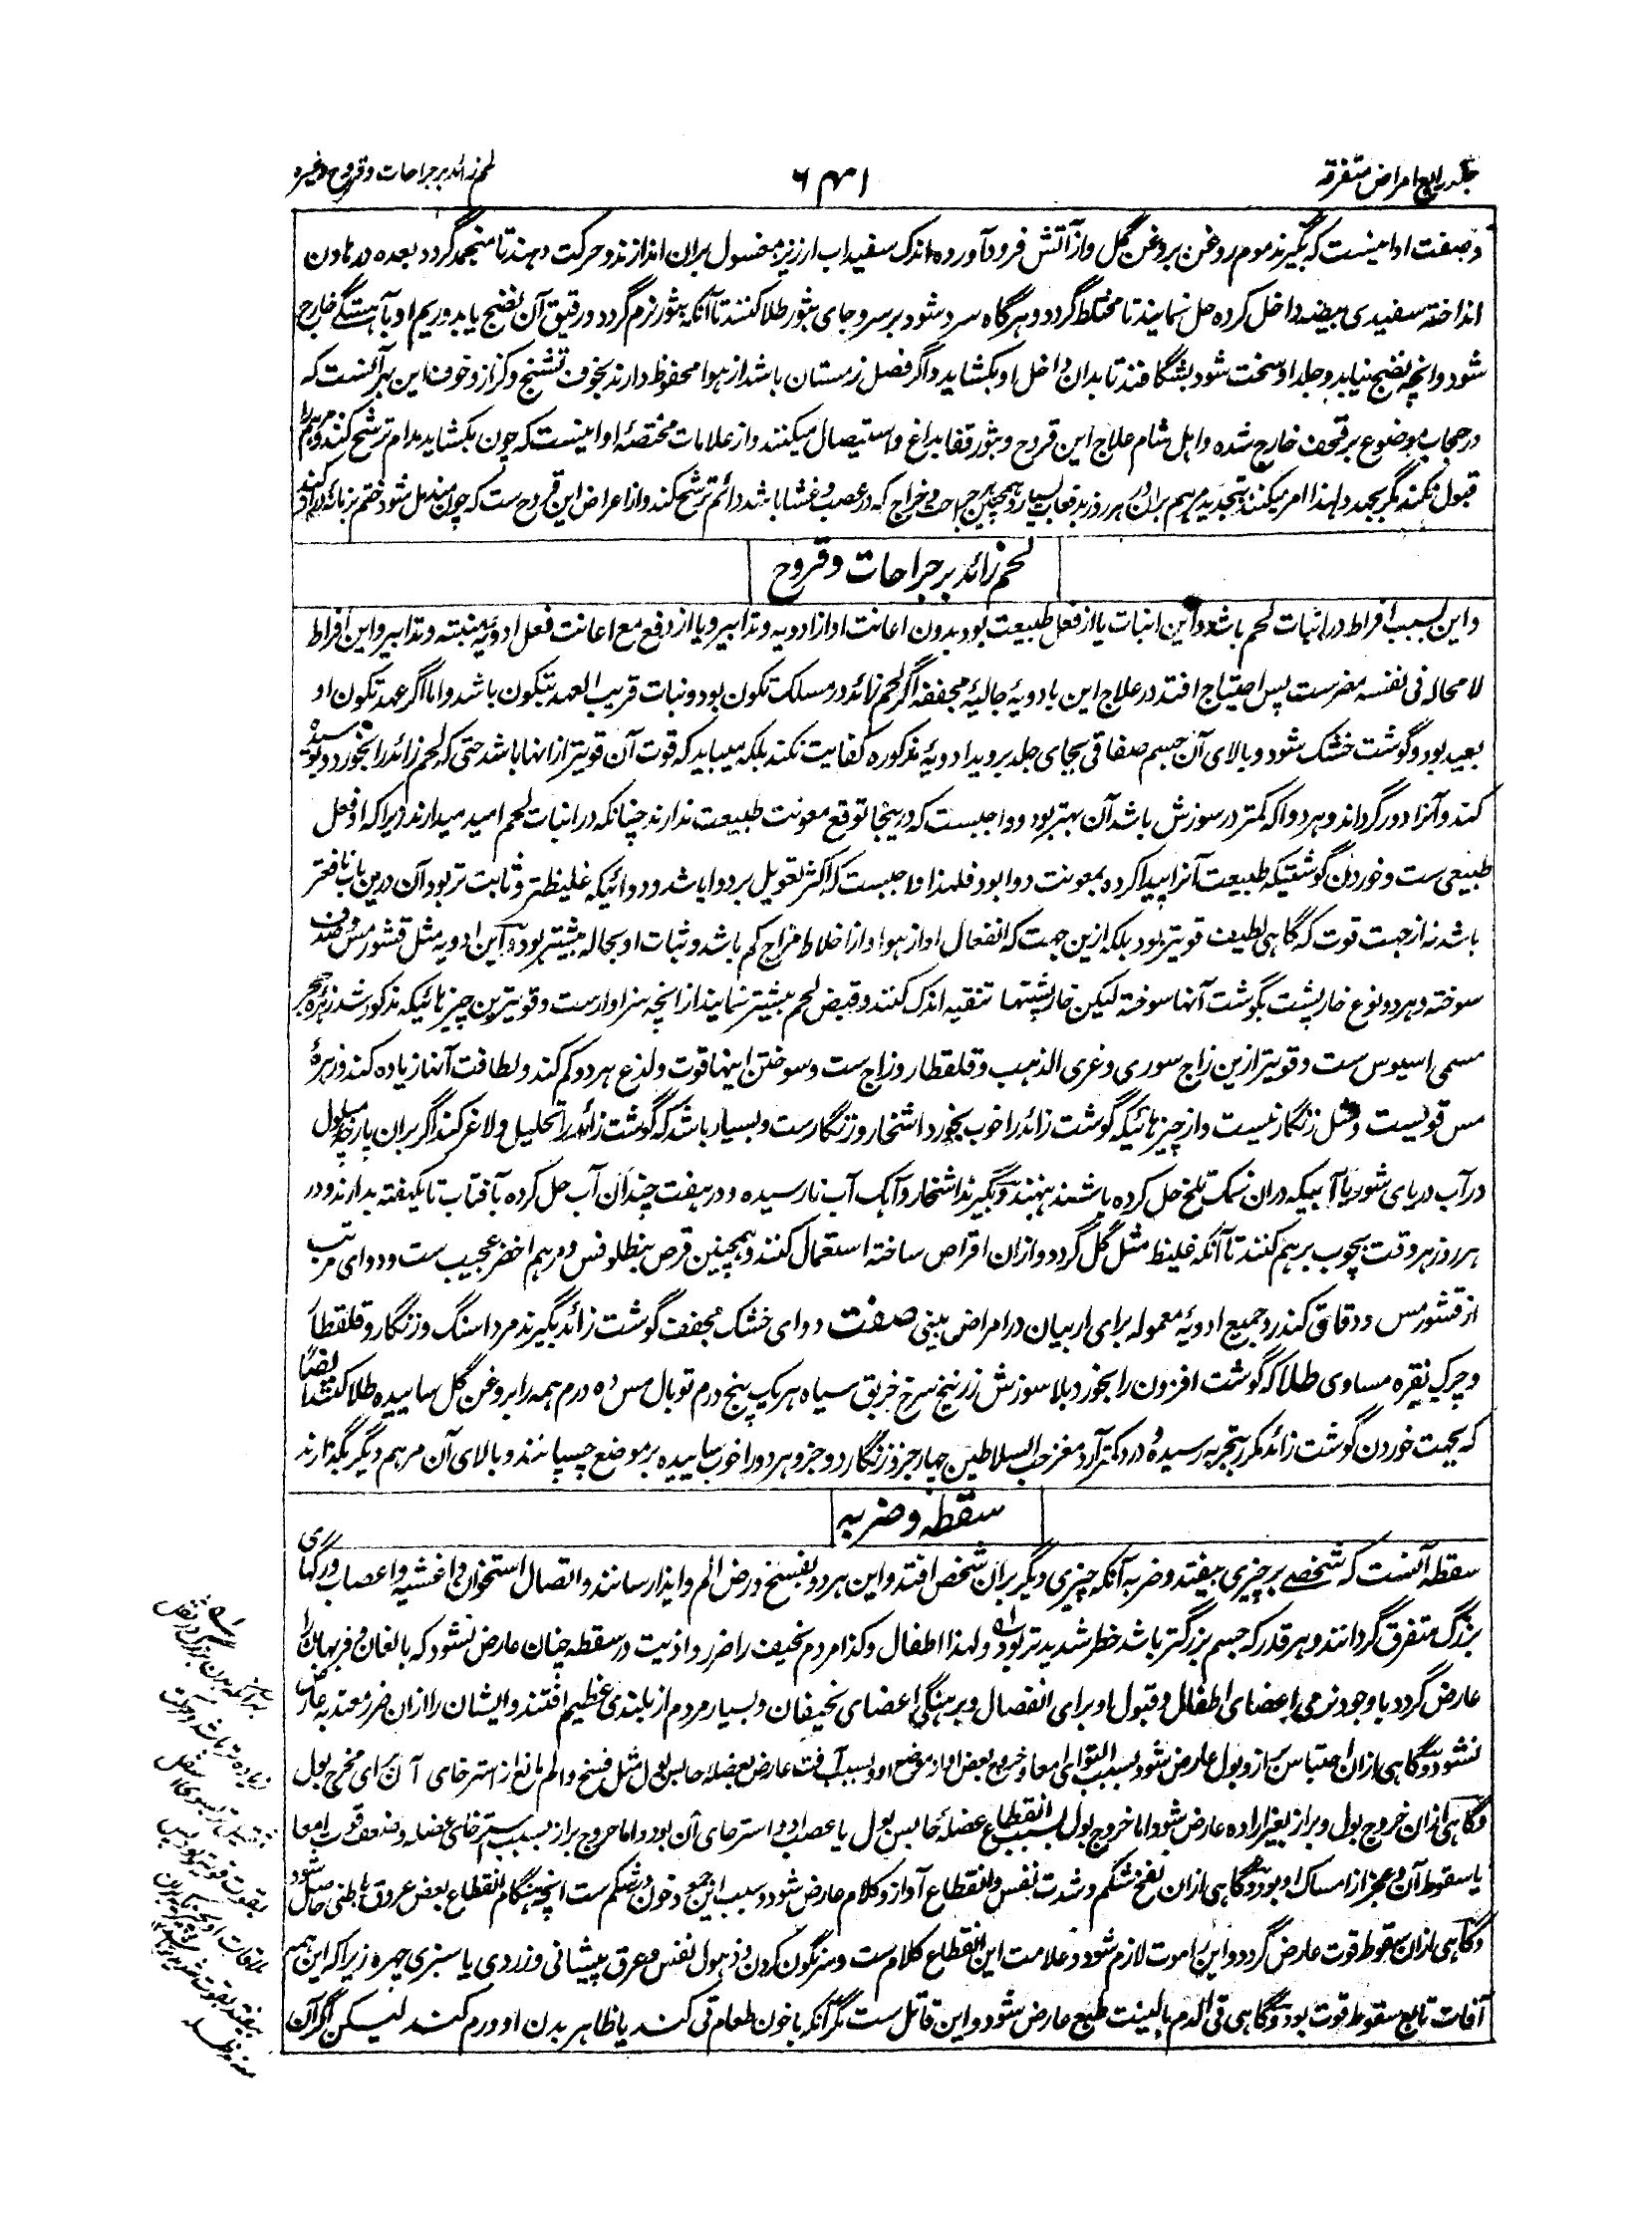 جلد رابع امراض متفرقه
۶۴۱
لحم زائد بر جراحات و قروح وغیره
وصفت او اینست که بگیرند موم روغن بروغن گل و از آتش فرود آورده اندک سفیداب ارزیز مغسول بران اندازند و حرکت دهند تا منجمد گردد بعده در هاون
انداخته سفیدی بیضه داخل کرده حل نمایند تا مختلط گردد و هرگاه سرد شود بر سر و جای بثور طلا کنند تا آنکه بثور نرم گردد و رقیق آن نضج یابد و ریم او بآهستگی خارج
شود و انچه نضج نیابد و جلد او سخت شود بشگافند تا بدان داخل او بکشاید و اگر فصل زمستان باشد از هوا محفوظ دارند بخوف تشنج و کزاز و خوف این بهر آنست که
در حجاب موضوع بر قحف خارج شده و اهل شام علاج این قروح و بثور قفا بداغ و استیصال میکنند و از علامات مختصهٔ او اینست که چون بکشاید مدام ترشح کند و مرهم را
قبول نکند مگر بجهد و لهذا امر میکنند بتجدید مرهم بران در هر روز بدفعات بسیار و همچنین هر جراحت و خراج که در عصب و غشا باشد دائم ترشح کند و از اعراض این قروح ست که چون مندمل شود ختم بزیائد
لحم زائد بر جراحات و قروح
و این بسبب افراط در انبات لحم باشد و این انبات یا از فعل طبیعت بود بدون اعانت او از ادویه و تدابیر و یا از دفع مع اعانت فعل ادویه منبته و تدابیر و این افراط
لا محاله فی نفسه مضرست پس احتیاج افتد در علاج این بادویهٔ جالیهٔ مجففه اگر لحم زائد در مسلک تکون بود و نبات قریب العهد بتکون باشد و اما اگر عهد تکون او
بعید بود و گوشت خشک شود و بالای آن جسم صفاقی بجای جلد بروید ادویهٔ مذکوره کفایت نکند بلکه میباید که قوت آن قویتر از انها باشد حتی که لحم زائد را بخورد و بوسیده
کند و آنرا دور گرداند و هر دوا که کمتر در سوزش باشد آن بهتر بود و واجبست که درینجا توقع معونت طبیعت ندارند چنانکه در انبات لحم امید میدارند زیرا که او فعل
طبیعی ست و خوردن گوشتیکه طبیعت آنرا پیدا کرده بمعونت دوا بود فلهذا واجبست که اکثر تعویل بر دوا باشد و دوائیکه غلیظتر و ثابت تر بود آن درین باب نافعتر
باشد نه از جهت قوت که گاهی لطیف قویتر بود بلکه ازین جهت که انفعال او از هوا و از اخلاط مزاج کم باشد و ثبات او بحاله بیشتر بود و این ادویه مثل قشور مس و صدف
سوخته و هر دو نوع خارپشت بگوشت آنها سوخته لیکن خارپشتها تنقیه اندک کنند و قبض لحم بیشتر نمایند از انچه سزاوارست و قویترین چیزهائیکه مذکور شد زهره حجر
مسمی اسیوس ست و قویتر ازین زاج سوری و غری الذهب و قلقطار و زاج ست و سوختن اینها قوت و لذع هر دو کم کند و لطافت آنها زیاده کند و زهرهٔ
مس قویست و مثل زنگار نیست و از چیزهائیکه گوشت زائد را خوب بخورد اشخار و زنگارست و بسیار باشد که گوشت زائد را تحلیل و لاغر کند اگر بران پارچه مبلول
در آب دریای شور یا آبیکه دران نمک تلخ حل کرده باشند بنهند و بگیرند اشخار و آهک آب نارسیده و در هفت چندان آب حل کرده بآفتاب تا یکهفته بدارند و در
هر روز هر وقت بچوب برهم کنند تا آنکه غلیظ مثل گل گردد و ازان اقراص ساخته استعمال کنند و همچنین قرص بنطلوفس و مرهم اخضر عجیب ست و دوای مرتب
از قشور مس و دقاق کندر و جمیع ادویهٔ معموله برای اربیان در امراض بینی صفت دوای خشک مجفف گوشت زائد بگیرند مرداسنگ و زنگار و قلقطار
و چرک نقره مساوی طلا که گوشت افزون را بخورد بلا سوزش زرنیخ سرخ خربق سیاه هریک پنج درم توبال مس ده درم همه را بروغن گل ساییده طلا کنند ایضا
که بجهت خوردن گوشت زائد مکرر بتجربه رسیده و درد کمتر آرد مغز حب السلاطین چهار جزو زنگار دو جزو هر دو را خوب ساییده بر موضع چسپانند و بالای آن مرهم دیگر بگذارند
سقطه و ضربه
سقطه آنست که شخصے بر چیزی بیفتد و ضربه آنکه چیزی دیگر بران شخص افتد و این هر دو بفسخ و رض الم و ایذا رسانند و اتصال استخوان و اغشیه و اعصاب و رگهای
بزرگ متفرق گردانند و هر قدر که جسم بزرگتر باشد خطر شدیدتر بود و لهذا اطفال و کذا مردم نحیف را ضرر و اذیت در سقطه چنان عارض نشود که بالغان و فربهان را
عارض گردد با وجود نرمی اعضای اطفال و قبول او برای انفصال و برهنگی اعضای نحیفان و بسیار مردم از بلندی عظیم افتند و ایشان را ازان ضرر معتد به عارض
نشود و گاهی ازان احتباس براز و بول عارض شود بسبب التوای امعا و خروج بعض او از موضع او و بسبب آفت عارض بعضلهٔ حابس بول مثل فسخ و الم مانع از استرخای آن برای مخرج بول
و گاهی ازان خروج بول و براز بغیر اراده عارض شود اما خروج بول بسبب انقطاع عضلهٔ حابس بول یا عصب او و استرخای آن بود و اما خروج براز بسبب استرخای عضله و ضعف قوت امعا
یا سقوط آن و عجز از امساک او بود و گاهی ازان نفخ شکم و شدت نفس و انقطاع آواز و کلام عارض شود و سبب این جمع خون در شکم ست انچه هنگام انقطاع بعض عروق باطنی حاصل شود
و گاهی ازان سقوط قوت عارض گردد و این را موت لازم شود و علامت این انقطاع کلام ست و سرنگون کردن و ذهول نفس و عرق پیشانی و زردی یا سبزی چهره زیرا که این همه
آفات تابع سقوط قوت بود و گاهی قی الدم یا لینت طبع عارض شود و این قاتل ست مگر آنکه با خون طعام قی کند یا ظاهر بدن او ورم کند لیکن اگر آن